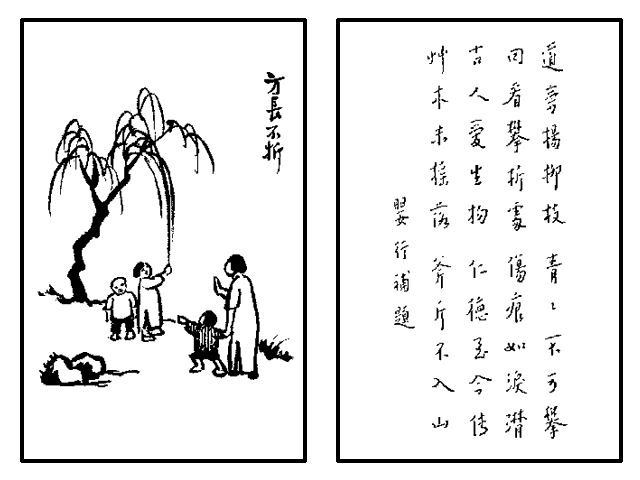 方長不折
道旁楊柳枝 青々不可攀
回看攀折處 傷痕如淚潸
古人愛生物 仁德至今傳
艸木未搖落 斧斤不入山
嬰行補題